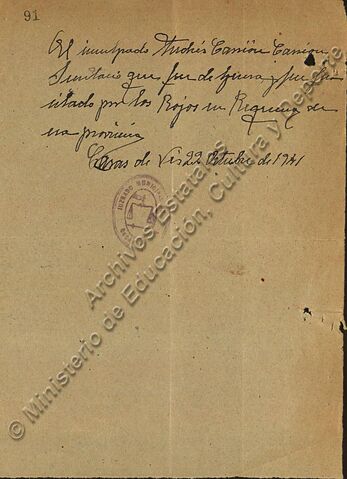 91
El inculpado Andrés Carrión Carrión
Secretario que fue de izquierdas y fue
por los Rojos en Requena de
esa provincia
Casas de Ves 22 Octubre de 1941
JUZGADO MUNICIPAL
© Ministerio de Educación, Cultura y Deporte
Archivos Estatales